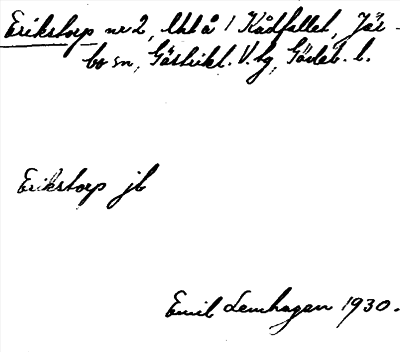 Erikstorp nr 2, Utå 1 Kådfallet, Jär-
bo sn, Gästrikl. V. tg, Gävleb. l.
Erikstorp jb
Emil Lemhagen 1930.